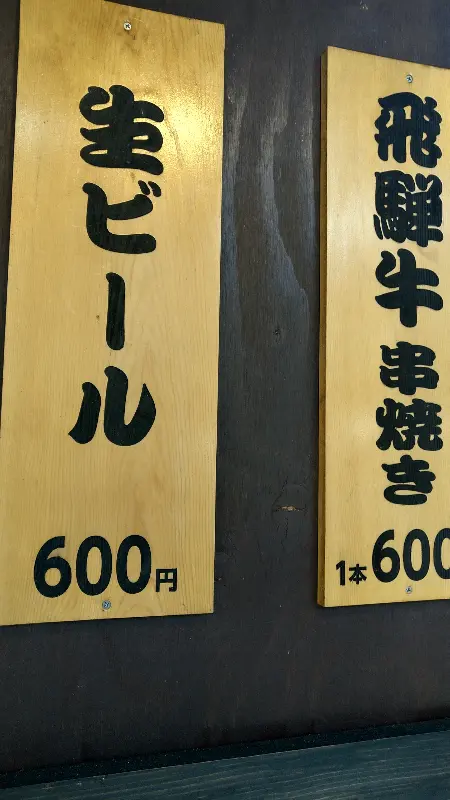 生ビール
600円
飛騨牛串焼き
1本600